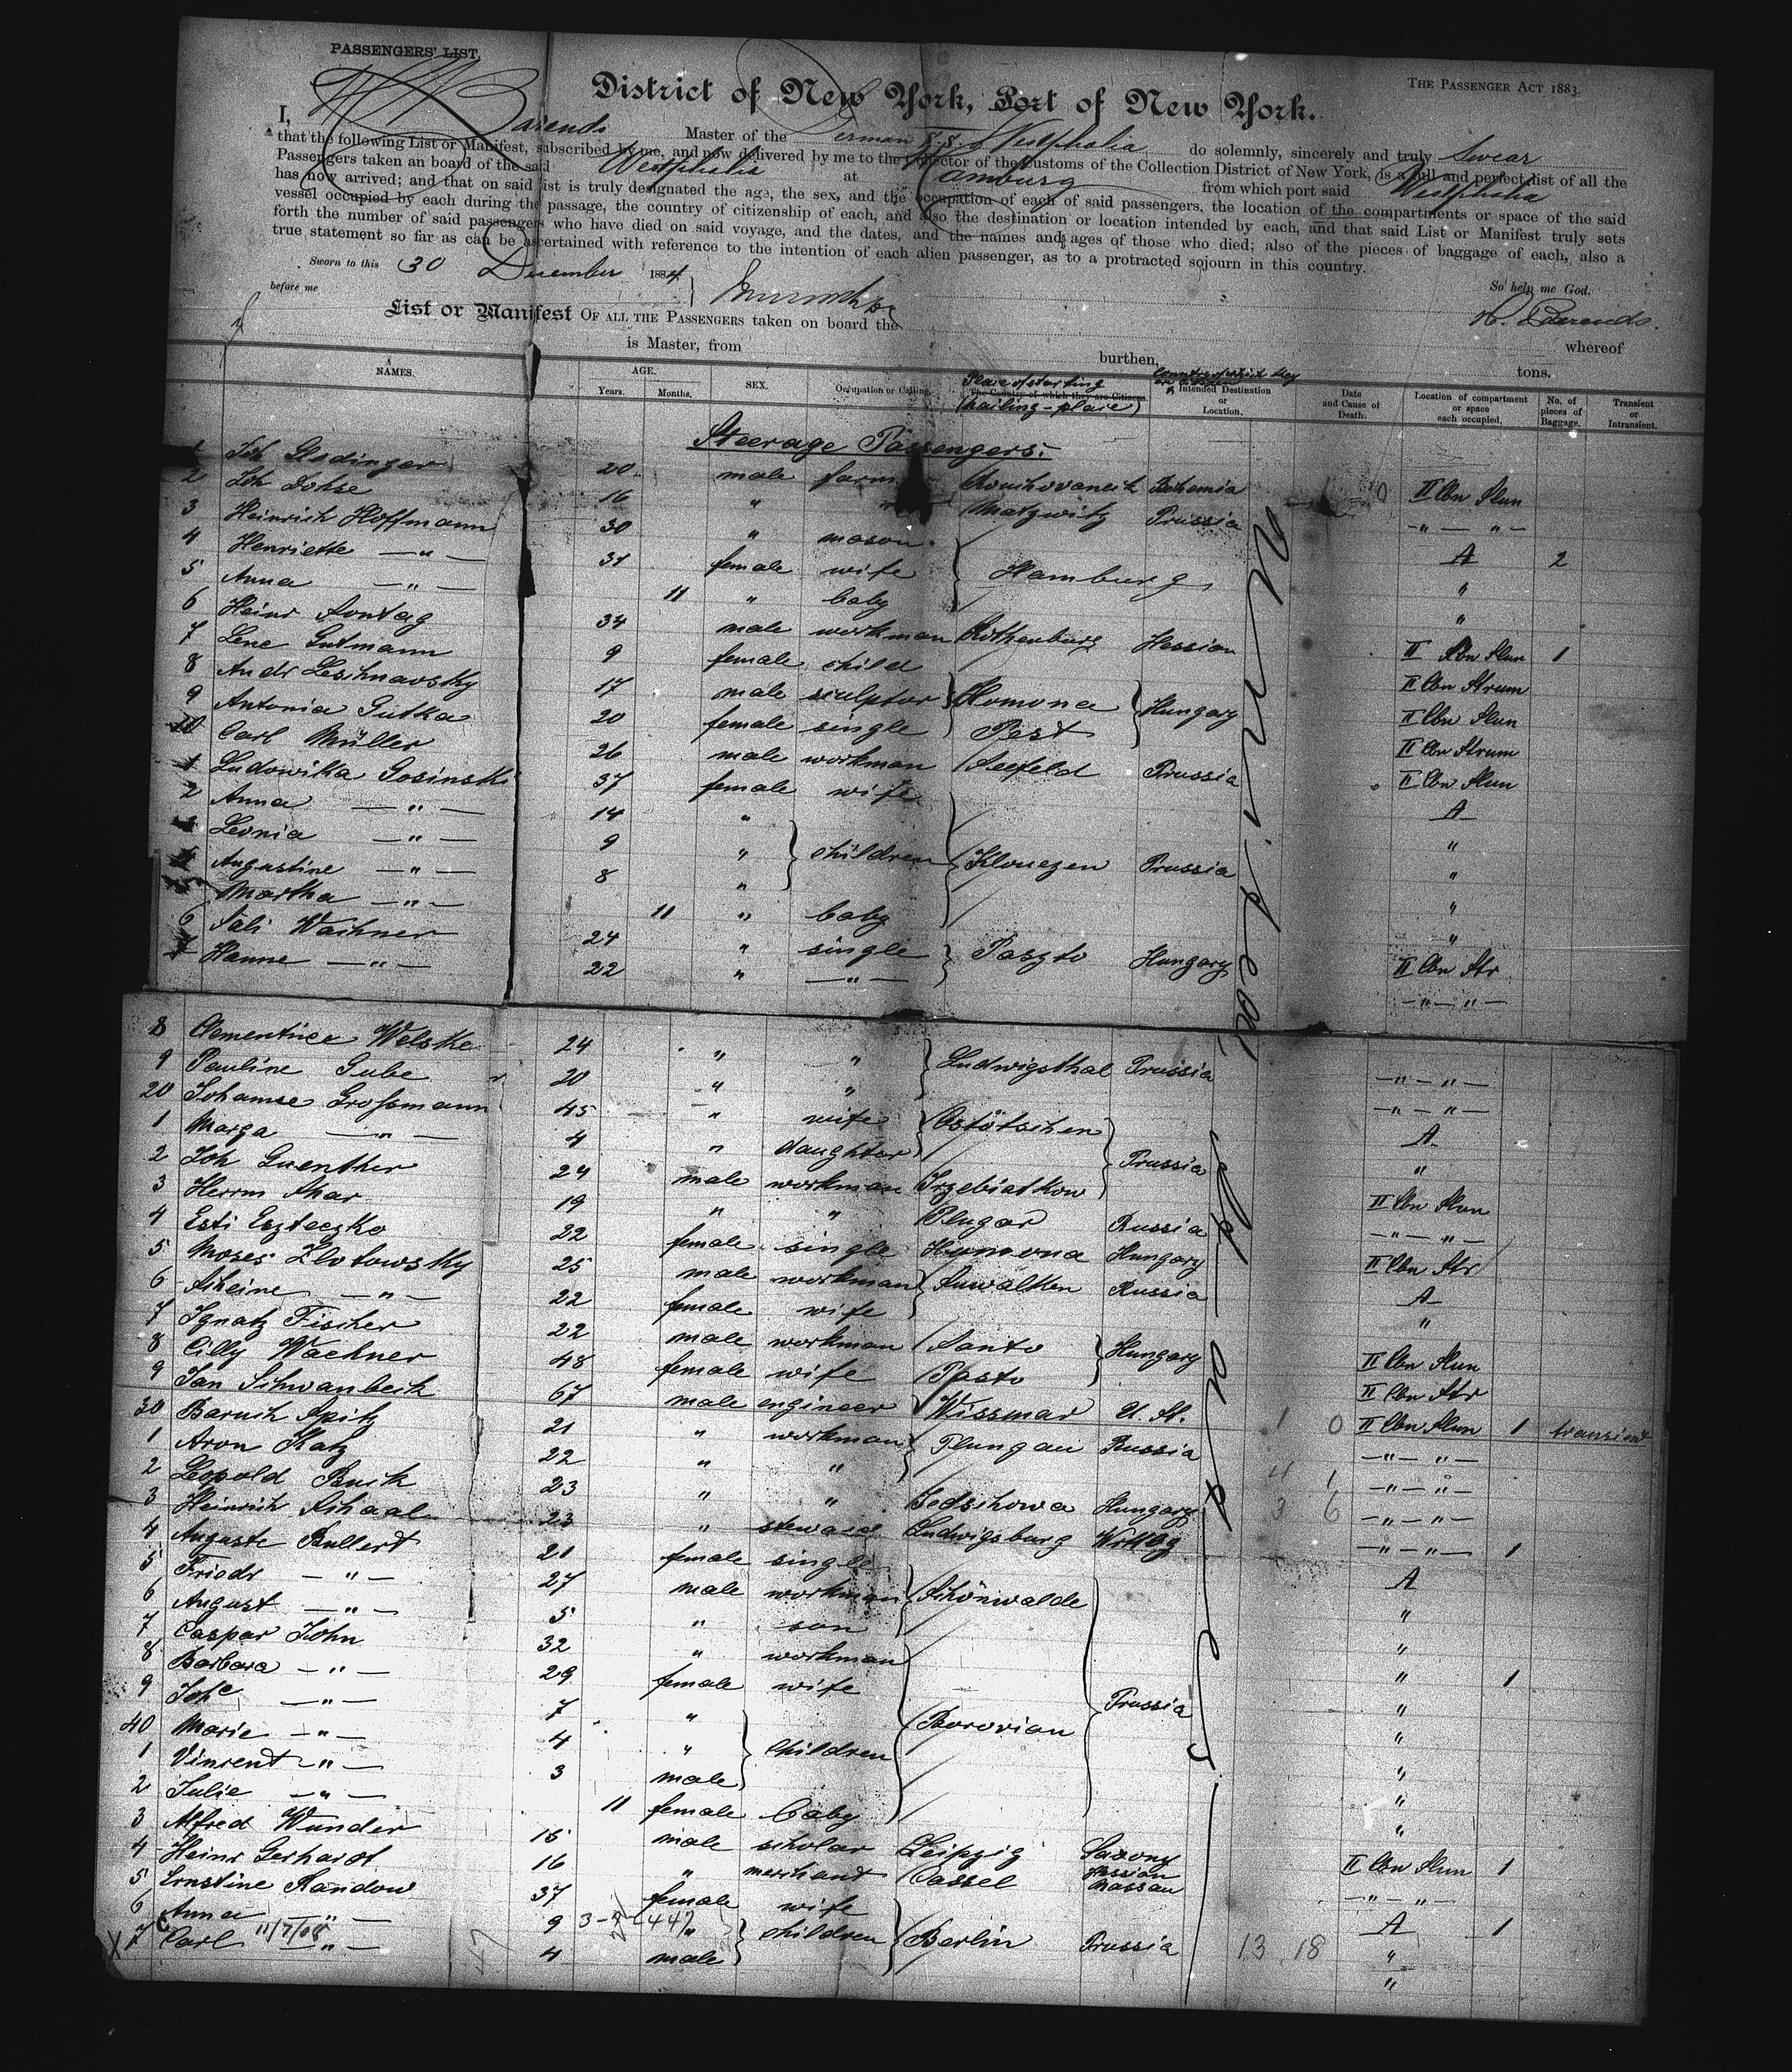 PASSENGERS' LIST.
THE PASSENGER ACT 1883.
District of New York, Port of New York.
I, Barends Master of the German S.S. Westphalia do solemnly, sincerely and truly Swear
that the following List or Manifest, subscribed by me, and now delivered by me to the Collector of the Customs of the Collection District of New York, is a full and perfect list of all the
Passengers taken on board of the said Westphalia at Hamburg from which port said Westphalia
has now arrived; and that on said list is truly designated the age, the sex, and the occupation of each of said passengers, the location of the compartments or space of the said
vessel occupied by each during the passage, the country of citizenship of each, and also the destination or location intended by each, and that said List or Manifest truly sets
forth the number of said passengers who have died on said voyage, and the dates, and the names and ages of those who died; also of the pieces of baggage of each, also a
true statement so far as can be ascertained with reference to the intention of each alien passenger, as to a protracted sojourn in this country.
Sworn to this 30 December 1884
So help me God.
before me
Barends.
List or Manifest OF ALL THE PASSENGERS taken on board the whereof
is Master, from burthen, tons.
NAMES. AGE. Years. Months. SEX. Occupation or Calling. Place of starting The Country of which they are Citizens. (mailing-place) Country of which they are citizens Intended Destination or Location. Date and Cause of Death. Location of compartment or space each occupied. No. of pieces of Baggage. Transient or Intransient.
Steerage Passengers:
1 Joh 20 male farm Bohemia 0 II Cbn
2 Joh Dohse 16 " " Matzwitz Prussia -"- "-
3 Heinrich Hoffmann 30 " mason Hamburg A 2
4 Henriette -"- 31 female wife "
5 Anna -"- 11 " baby "
6 Heinr Sontag 34 male workman Rothenburg Hessian II Cbn 1
7 Lene Gutmann 9 female child II Cbn
8 Andr Leschnavsky 17 male sculptor Homona Hungary II Cbn
9 Antonia Gutka 20 female single Pest II Cbn
10 Carl Müller 26 male workman Seefeld Prussia II Cbn
1 Ludowika Gosinski 37 female wife A
2 Anna -"- 14 " "
3 Leonia -"- 9 " children Klonezen Prussia "
4 Augustine -"- 8 " "
5 Martha -"- 11 " baby "
6 Sali Wachner 24 " single Paszto Hungary II Cbn Str
7 Hanne -"- 22 " -"- -"- "-
8 Clementine Welske 24 " " Ludwigsthal Prussia -"- "-
9 Pauline Gube 20 " " -"- "-
20 Johanne Grossmann 45 " wife A
1 Marga -"- 4 " daughter Prussia "
2 Joh Guenther 24 male workman Trzebiatkow II Cbn
3 Herrm Skar 19 " " Russia -"- "-
4 Esti Eszteczko 22 female single Homona Hungary II Cbn Str
5 Moses Zlotowsky 25 male workman Suwalken Russia A
6 Scheine -"- 22 female wife "
7 Ignatz Fischer 22 male workman Santo Hungary II Cbn
8 Cilly Wachner 48 female wife Pasto II Cbn Str
9 Jan Schwanbeck 67 male engineer Wissmar U. St. 1 0 II Cbn 1 transient
30 Baruch Spitz 21 " workman Plungau Russia -"- "-
1 Aron Katz 22 " " 4 1 -"- "-
2 Leopold Buck 23 " " Hungary 3 6 -"- "-
3 Heinrich Schaal 23 " steward Ludwigsburg -"- "- 1
4 Auguste Bullert 21 female single A
5 Friedr -"- 27 male workman Schönwalde "
6 August -"- 5 " son "
7 Caspar John 32 " workman " 1
8 Barbara -"- 29 female wife "
9 -"- 7 " Borovian Prussia "
40 Marie -"- 4 " children "
1 Vincent -"- 3 male "
2 Julie -"- 11 female baby "
3 Alfred Wunder 15 male scholar Leipzig Saxony II Cbn 1
4 Heinr Gerhardt 16 " merchant Cassel Hessian Nassau -"- "-
5 Ernstine Randow 37 female wife A 1
6 Anna -"- 9 " children Berlin Prussia 13 18 "
X 7 Carl 11/7/08 -"- 4 male "